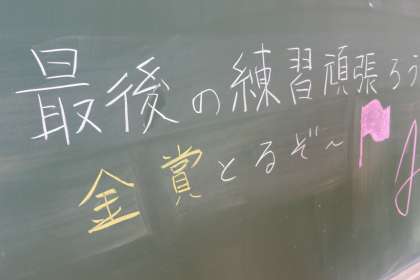 最後の練習頑張ろう
金賞とるぞ〜